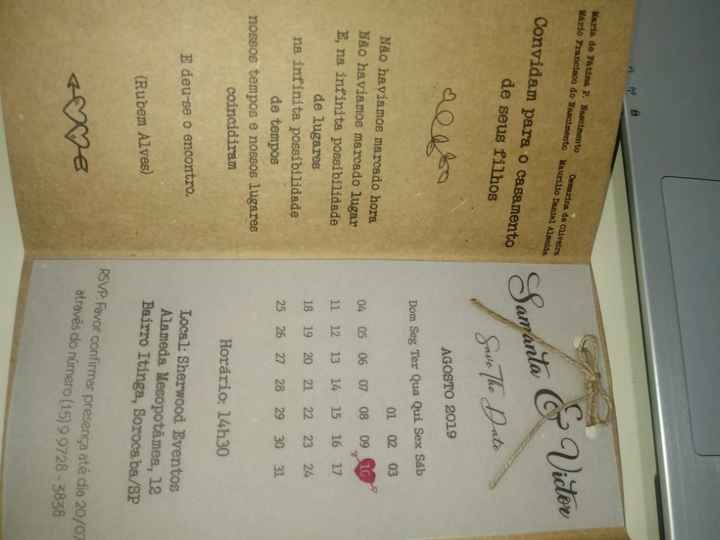 Maria de Fátima P. Nascimento
Mário Francisco do Nascimento
Osmarina de Oliveira
Maurilio Daniel Almeida
Convidam para o casamento
de seus filhos
Não havíamos marcado hora
Não havíamos marcado lugar
E, na infinita possibilidade
de lugares
na infinita possibilidade
de tempos
nossos tempos e nossos lugares
coincidiram
E deu-se o encontro.
(Rubem Alves)
Samanta & Victor
Save The Date
AGOSTO 2019
Dom Seg Ter Qua Qui Sex Sáb
01 02 03
04 05 06 07 08 09 10
11 12 13 14 15 16 17
18 19 20 21 22 23 24
25 26 27 28 29 30 31
Horário: 14h30
Local: Sherwood Eventos
Alameda Mesopotâmea, 12
Bairro Itinga, Sorocaba/SP
RSVP Favor confirmar presença até dia 20/07
através do número (15) 9 9728 - 3838